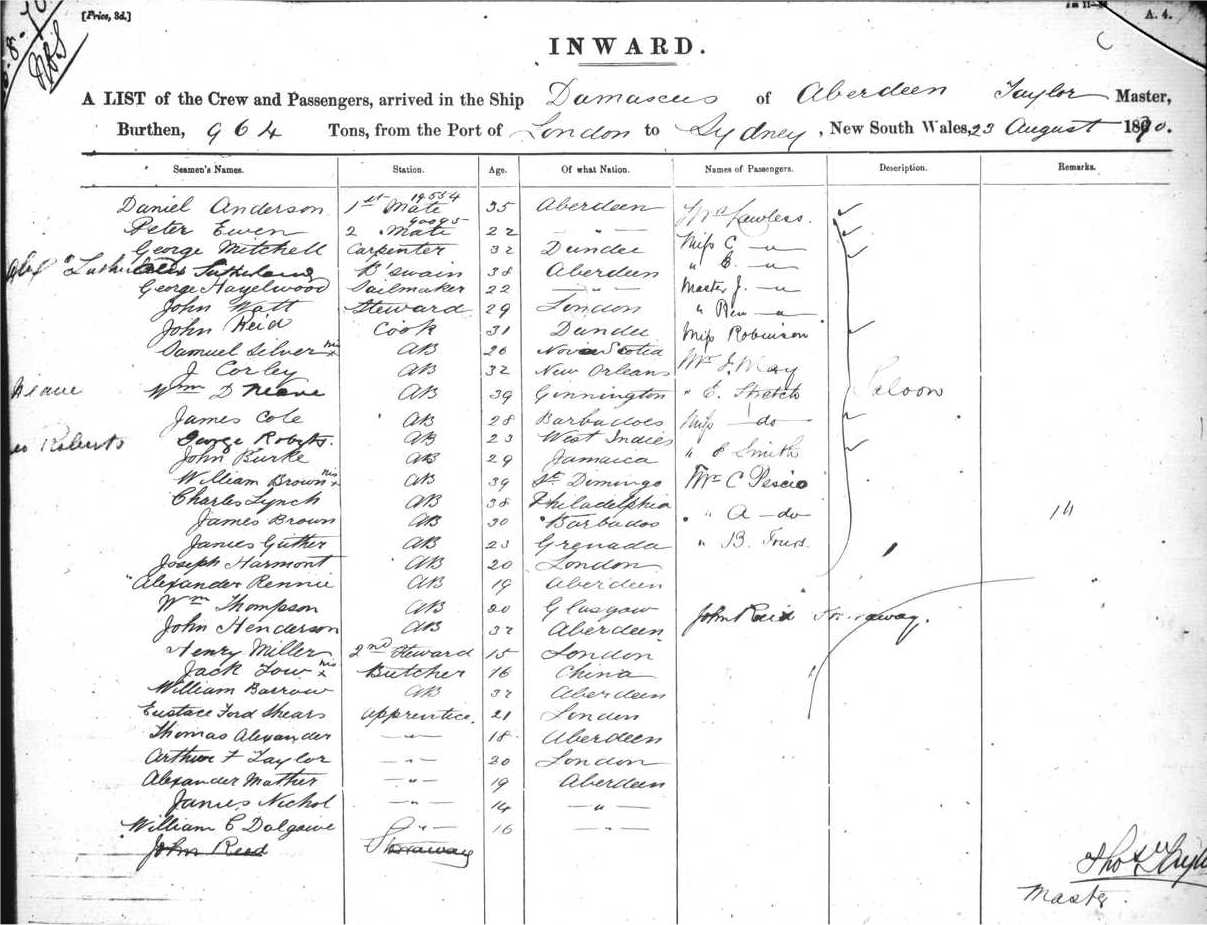 [Price, 3d.]
A. 4.
INWARD.
A LIST of the Crew and Passengers, arrived in the Ship Damascus of Aberdeen Taylor Master,
Burthen, 964 Tons, from the Port of London to Sydney, New South Wales, 23 August 1890.
Seamen's Names. Station. Age. Of what Nation. Names of Passengers. Description. Remarks.
Daniel Anderson 1st Mate 35 Aberdeen Mrs Lawless
Peter Ewen 2 Mate 22 — " — Miss C — " —
George Mitchell Carpenter 32 Dundee " E. — " —
Sutherland B'swain 38 Aberdeen
George Hazelwood Sailmaker 22 — " — Master J. — " —
John Watt Steward 29 London " — " —
John Reid Cook 31 Dundee Miss Robinson
Samuel Silver his x AB 26 Nova Scotia
J Corley AB 32 New Orleans Mr J. May
Neave Wm D Neave AB 39 Ginnington " E. Stretch Saloon
James Cole AB 28 Barbadoes Miss — do —
Roberts George Roberts. AB 23 West Indies
John Burke AB 29 Jamaica " E Smith
William Brown his x AB 39 St. Domingo Mr C Pescio
Charles Lynch AB 38 Philadelphia
James Brown AB 30 Barbados " A — do 14
James Guther AB 23 Grenada " B.
Joseph Harmont AB 20 London
Alexander Rennie AB 19 Aberdeen
Wm Thompson AB 20 Glasgow John Reid Stowaway.
John Henderson AB 32 Aberdeen
Henry Miller 2nd Steward 15 London
Jack Tow his x Butcher 16 China
William Barrow AB 32 Aberdeen
Eustace Ford Shears Apprentice. 21 London
Thomas Alexander — " — 18 Aberdeen
Arthur F Taylor — " — 20 London
Alexander Mather — " — 19 Aberdeen
James Nichol — " — 14 — " —
William C — " — 16 — " —
John Reed Stowaway
Master.